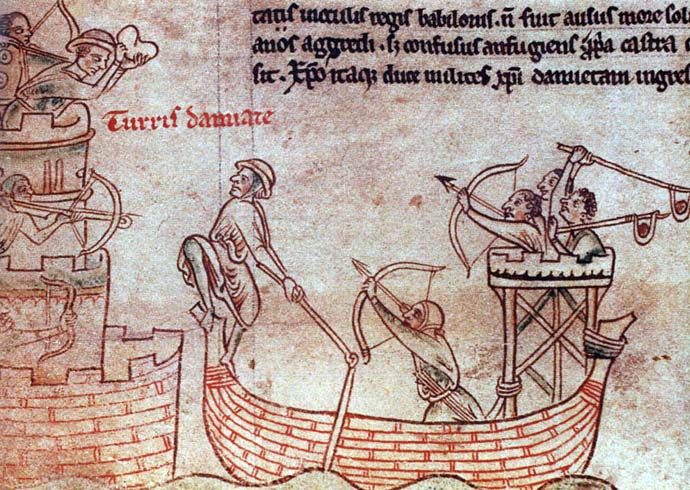 tatis in oculis regis babilonis. ñ fuit ausus more sol
aggredi. s; confusus aufugiens castra
sit. Xp̄o itaq; duce milites xp̄i damietam ingres
Turris damiate